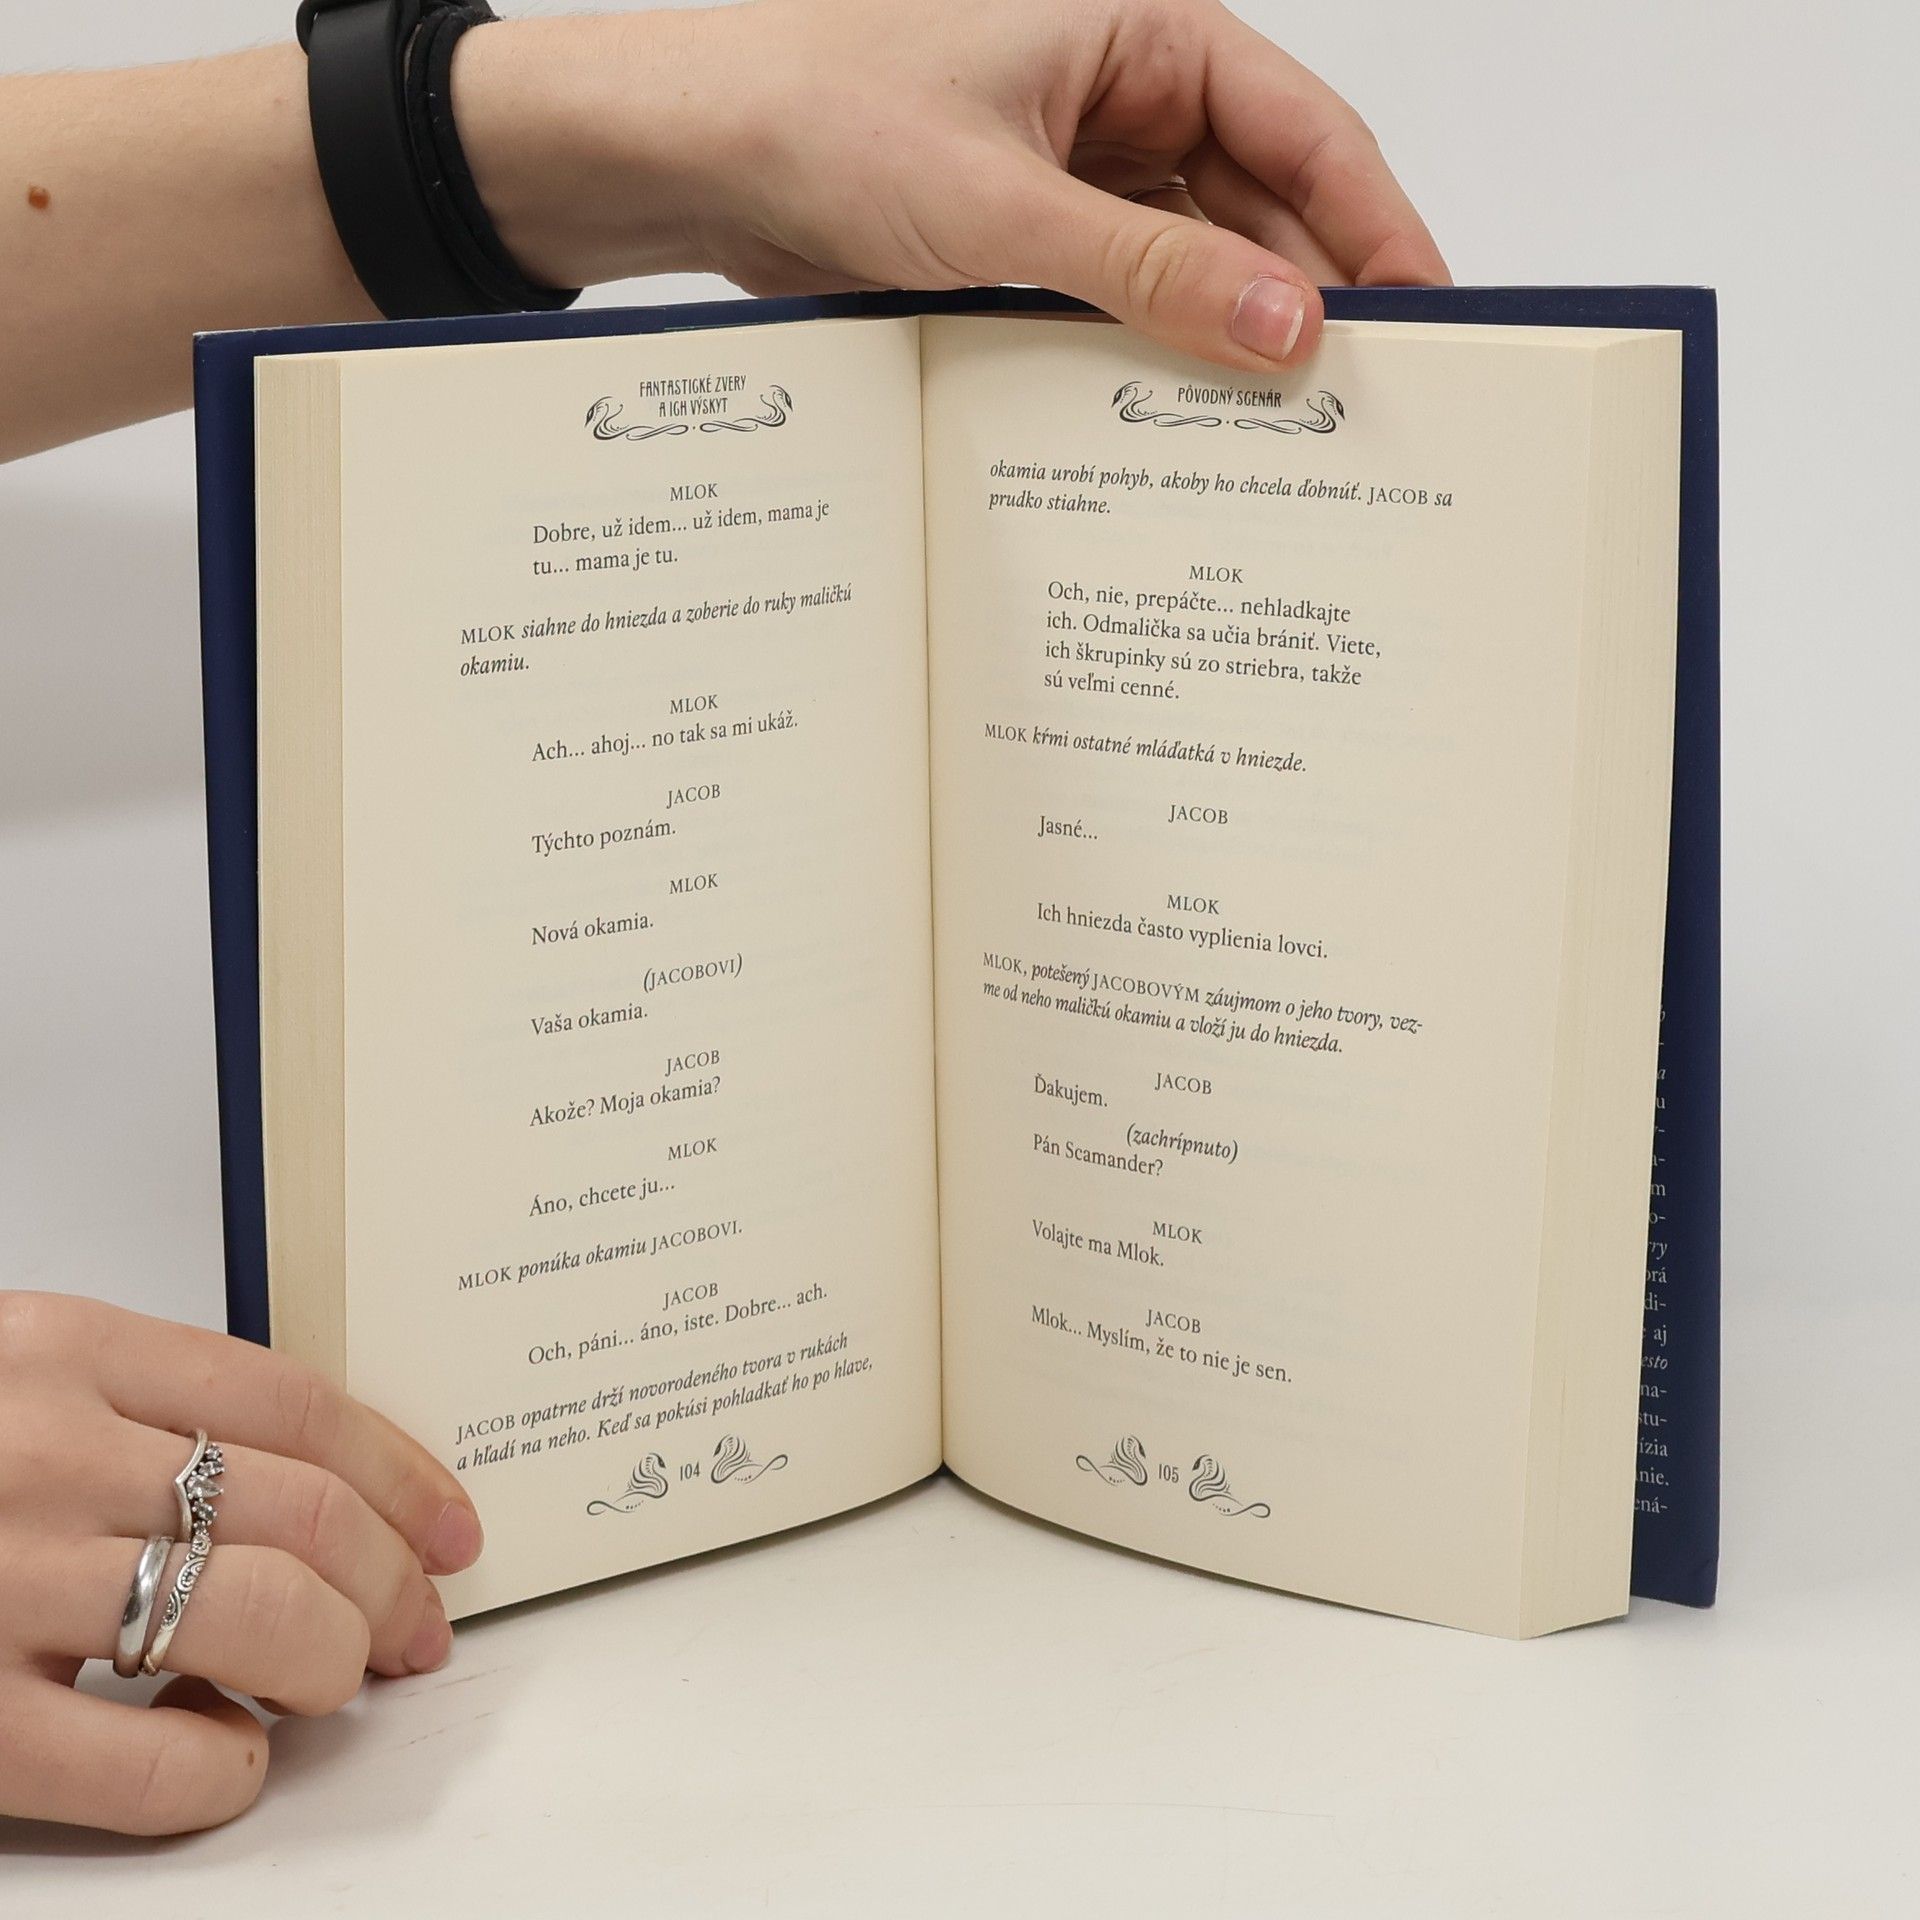 FANTASTICKÉ ZVERY
A ICH VÝSKYT
MLOK
Dobre, už idem... už idem, mama je
tu... mama je tu.
MLOK siahne do hniezda a zoberie do ruky maličkú
okamiu.
MLOK
Ach... ahoj... no tak sa mi ukáž.
JACOB
Týchto poznám.
MLOK
Nová okamia.
(JACOBOVI)
Vaša okamia.
JACOB
Akože? Moja okamia?
MLOK
Áno, chcete ju...
MLOK ponúka okamiu JACOBOVI.
JACOB
Och, páni... áno, iste. Dobre... ach.
JACOB opatrne drží novorodeného tvora v rukách
a hľadí na neho. Keď sa pokúsi pohladkať ho po hlave,
104
PÔVODNÝ SCENÁR
okamia urobí pohyb, akoby ho chcela ďobnúť. JACOB sa
prudko stiahne.
MLOK
Och, nie, prepáčte... nehladkajte
ich. Odmalička sa učia brániť. Viete,
ich škrupinky sú zo striebra, takže
sú veľmi cenné.
MLOK kŕmi ostatné mláďatká v hniezde.
JACOB
Jasné...
MLOK
Ich hniezda často vyplienia lovci.
MLOK, potešený JACOBOVÝM záujmom o jeho tvory, vez-
me od neho maličkú okamiu a vloží ju do hniezda.
JACOB
Ďakujem.
(zachrípnuto)
Pán Scamander?
MLOK
Volajte ma Mlok.
JACOB
Mlok... Myslím, že to nie je sen.
105